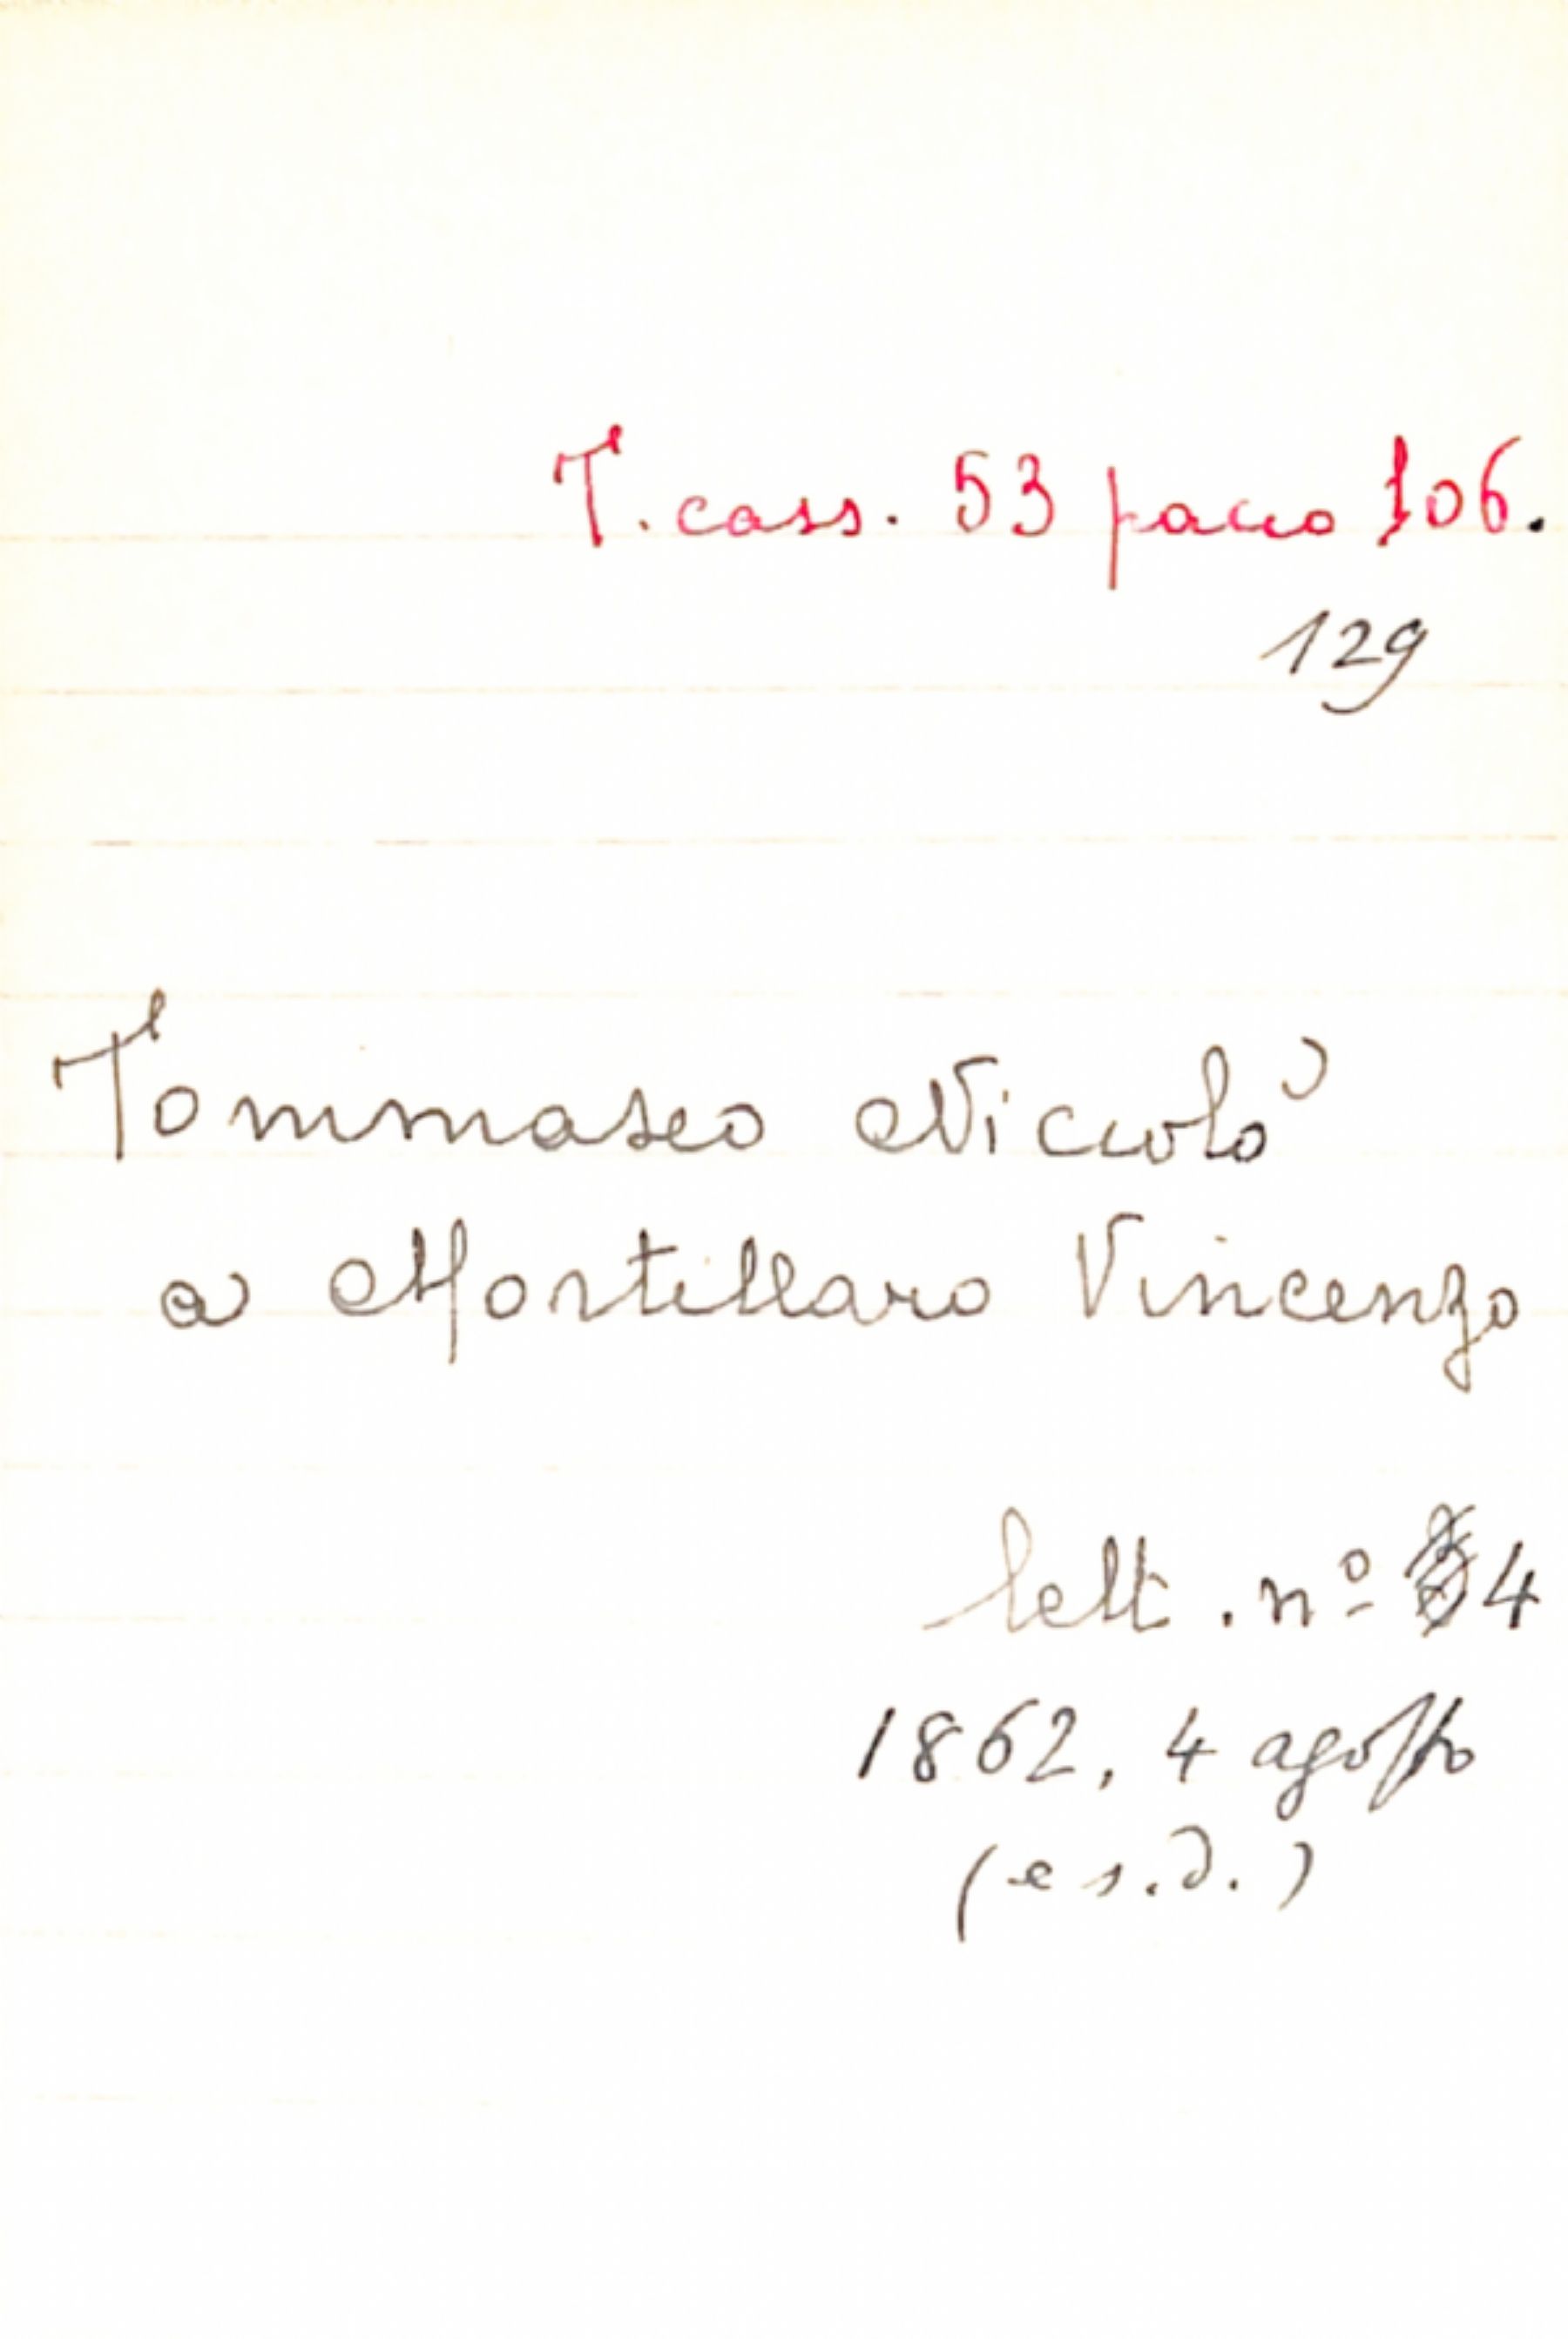 T. cass. 53 pacco 106.
129
Tommaseo Niccolò
a Mortillaro Vincenzo
lett. nº 4
1862, 4 agosto
(e s.d.)